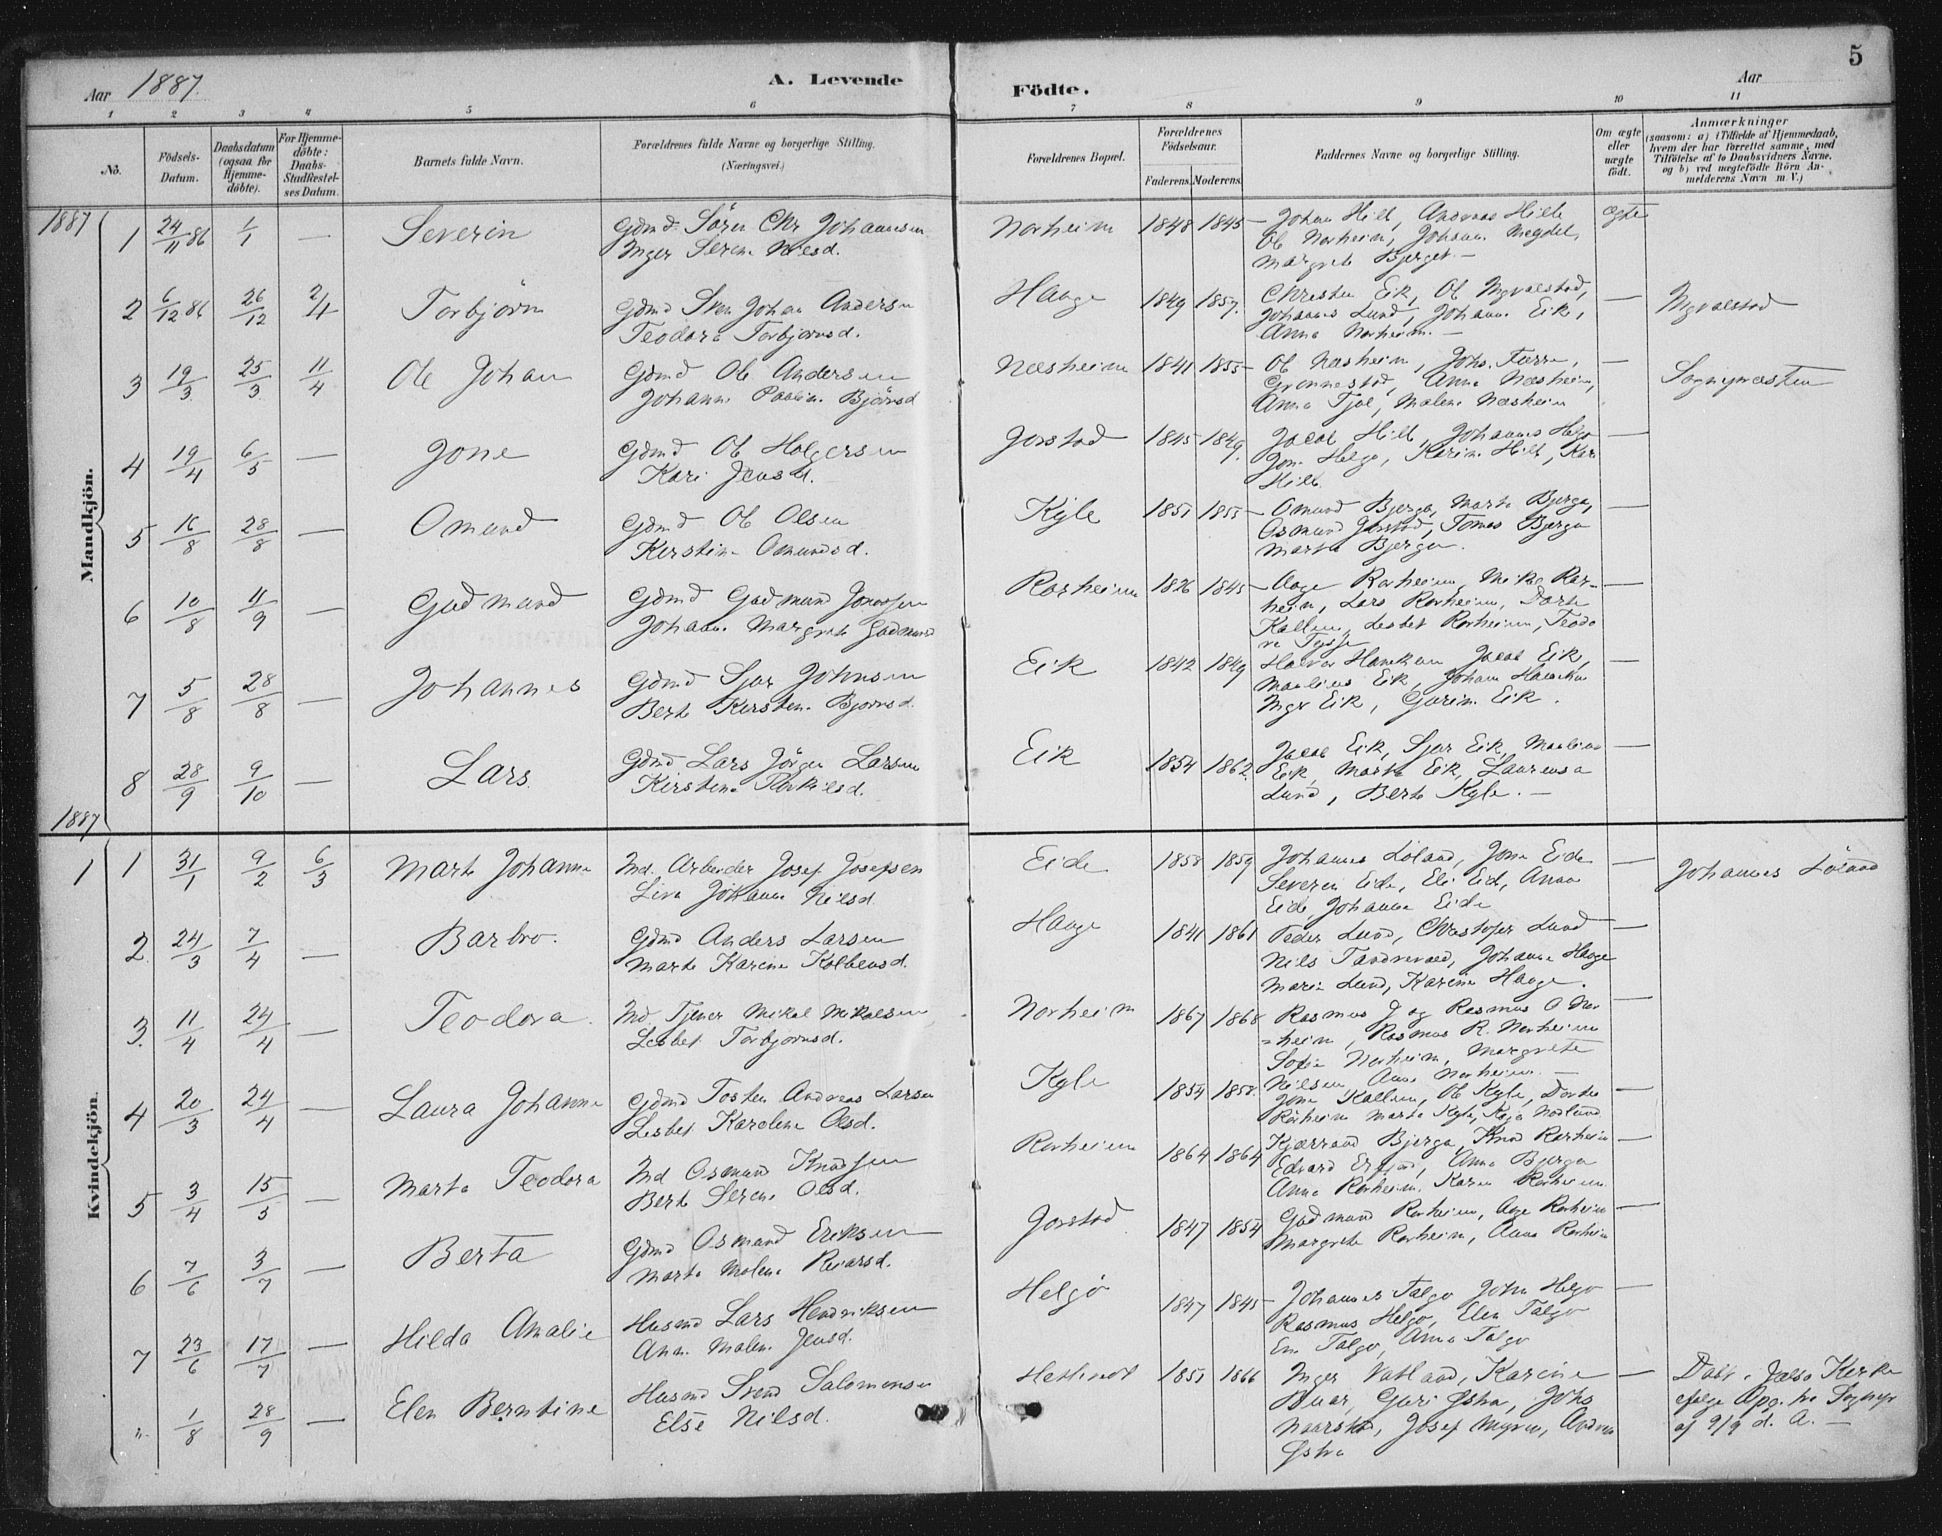 5
Aar 1887.
A. Levende
Födte.
Aar
1 2 3 4 5 6 7 8 9 10 11
No.
Födsels-
Datum.
Daabsdatum
(ogsaa for
Hjemme-
döbte).
For Hjemme-
döbte:
Daabs-
Stadfæstel-
ses Datum.
Barnets fulde Navn.
Forældrenes fulde Navne og borgerlige Stilling.
(Næringsvei.)
Forældrenes Bopæl.
Forældrenes
Födselsaar.
Faderens. Moderens.
Faddernes Navne og borgerlige Stilling.
Om ægte
eller
uægte
födt.
Anmærkninger
(saasom: a) i Tilfælde af Hjemmedaab,
hvem der har forrettet samme, med
Tilföielse af to Daabsvidners Navne,
og b) ved uægtefödte Börn An-
melderens Navn m. V.)
Mandkjön.
1887
1 24/11 86 1/1 — Severin
Gdmd Sören Chr Johannsen
Inger Serine Nilsd.
Norheim 1848 1845
Ole Norheim, Johan
Margrete Bjerget. —
ægte
2 6/12 86 26/12 2/4 Torbjörn
Gdmd Sven Johan Andersen
Teodora Torbjörnsd.
Hauge 1849 1857.
Christen Eik, Ole Nyvalstad,
Johannes Lund, Johanne Eik,
Anna Norheim. —
— Nyvalstad
3 19/3 25/3 11/4 Ole Johan
Gdmd Ole Andersen
Johanne Paalin Björnsd
Næsheim 1841 1855
Ole Næsheim, Johs.
Anna Næsheim,
Anna Tjol, Malene Næsheim
— Sognepræsten
4 19/4 6/5 — Jone
Gdmd Ole Holgersen
Kari Jensd.
Jorstad 1845 1849.
Jacob Hill, Johannes Helgø
Jone Helgø, Karine Hill, Kari
Hill.
—
5 16/8 28/8 — Omund
Gdmd Ole Olsen
Kirstine Omundsd.
Kyle 1851 1855
Omund Bjerga, Marta Bjerga,
Osmund Jorstad, Tomas Bjerga
Marta Bjerga.
—
6 10/8 11/9 — Gudmund
Gdmd Gudmund Jonassen
Johanne Margrete Gudmund
Rorheim 1826 1845
Aage Rorheim, Mika Ror-
heim, Lars Rorheim, Dorte
Kallem, Lesbet Rorheim, Teodo
ra
—
7 5/8 28/8 — Johannes
Gdmd Sjur Johnsen
Berte Kirstine Bjørnsd.
Eik 1842 1849
Jacob Eik,
Eik, Johan
Inger Eik, Gurine Eik.
—
8 28/9 9/10 — Lars.
Gdmd Lars Jörgen Larsen
Kirstine Torkilsd.
Eik 1854 1862.
Jacob Eik, Sjur Eik,
Eik, Marta Eik, Laurensa
Lund, Berte Kyle. —
—
1887
Kvindekjön.
1 1 31/1 9/2 6/3 Marte Johanne
Ind. Arbeider Josef Josefsen
Liva Johanne Nilsd
Eide 1858 1859
Johannes Loland, Jone Eide
Severin Eide, Eli Eide, Anna
Eide, Johanna Eide
— Johannes Loland
2. 24/3 7/4 — Barbro.
Gdmd Anders Larsen
Marte Karine Kolbensd.
Hauge 1841 1861
Peder Lund, Christofer Lund
Nils Johanne Hauge
Marie Lund, Karine Hauge.
—
3. 11/4 24/4 — Teodora
Ind Tjener Mikal Mikalsen
Lesbet Torbjornsd.
Norheim 1867 1868
Rasmus J og Rasmus O Nor
=heim, Rasmus R. Norheim
Sofie Norheim, Margrete
Nilsen, Anna Norheim. —
—
4 20/3 24/4 — Laura Johanne
Gdmd Tosten Andreas Larsen
Lesbet Karoline Olsd.
Kyle 1854 1858.
Jone Kallem, Ole Kyle, Dorte
Rorheim Marta Kyle,
—
5 3/4 15/5 — Marta Teodora
Ind Osmund Knudsen
Berte Serine Olsd.
Rorheim 1864 1864
Bjerga, Knud Rorheim
Edvard Erfjord, Anna Bjerga
Anna Rorheim, Karen Rorheim.
—
6 7/6 3/7 — Berta
Gdmd Osmund Eriksen
Marta Malene
Jorstad 1847 1854
Gudmund Rorheim, Aage Rorheim
Margrete Rorheim, Anna Rorheim
—
7 23/6 17/7 — Hilda Amalie
Husmd Lars Hendriksen
Ane Malene Jensd.
Helgø 1847 1845
Johannes Talgø John Helgø
Rasmus Helgø, Elen Talgø
Talgø, Anna Talgø
—
" 1/8 28/9 — Elen Berntine
Husmd Svend Salomonsen
Else Nilsd.
1851 1866
Inger Vatland, Karine
Guri Østra, Johs
Josef Myren,
Østra
— Døbt i Jælsø Kirke
ifølge Opg. fra Sognepr
af 9/9 d. A. —